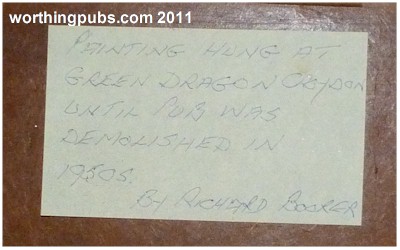 worthingpubs.com 2011
PEINTING HUNG AT
GREEN DRAGON CROYDON
UNTIL PUB WAS
DEMOLISHED IN
1950S.
By RICHARD BOORER